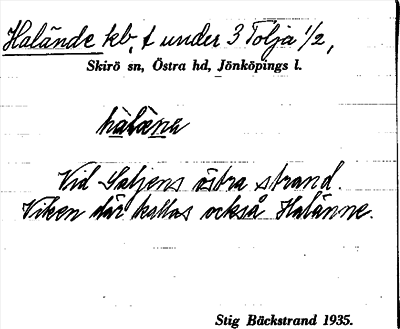 Halände kb, t under 3 Tolja 1/2,
Skirö sn, Östra hd, Jönköpings l.
halæna
Vid Saljens östra strand.
Viken där kallas också Halänne.
Stig Bäckstrand 1935.